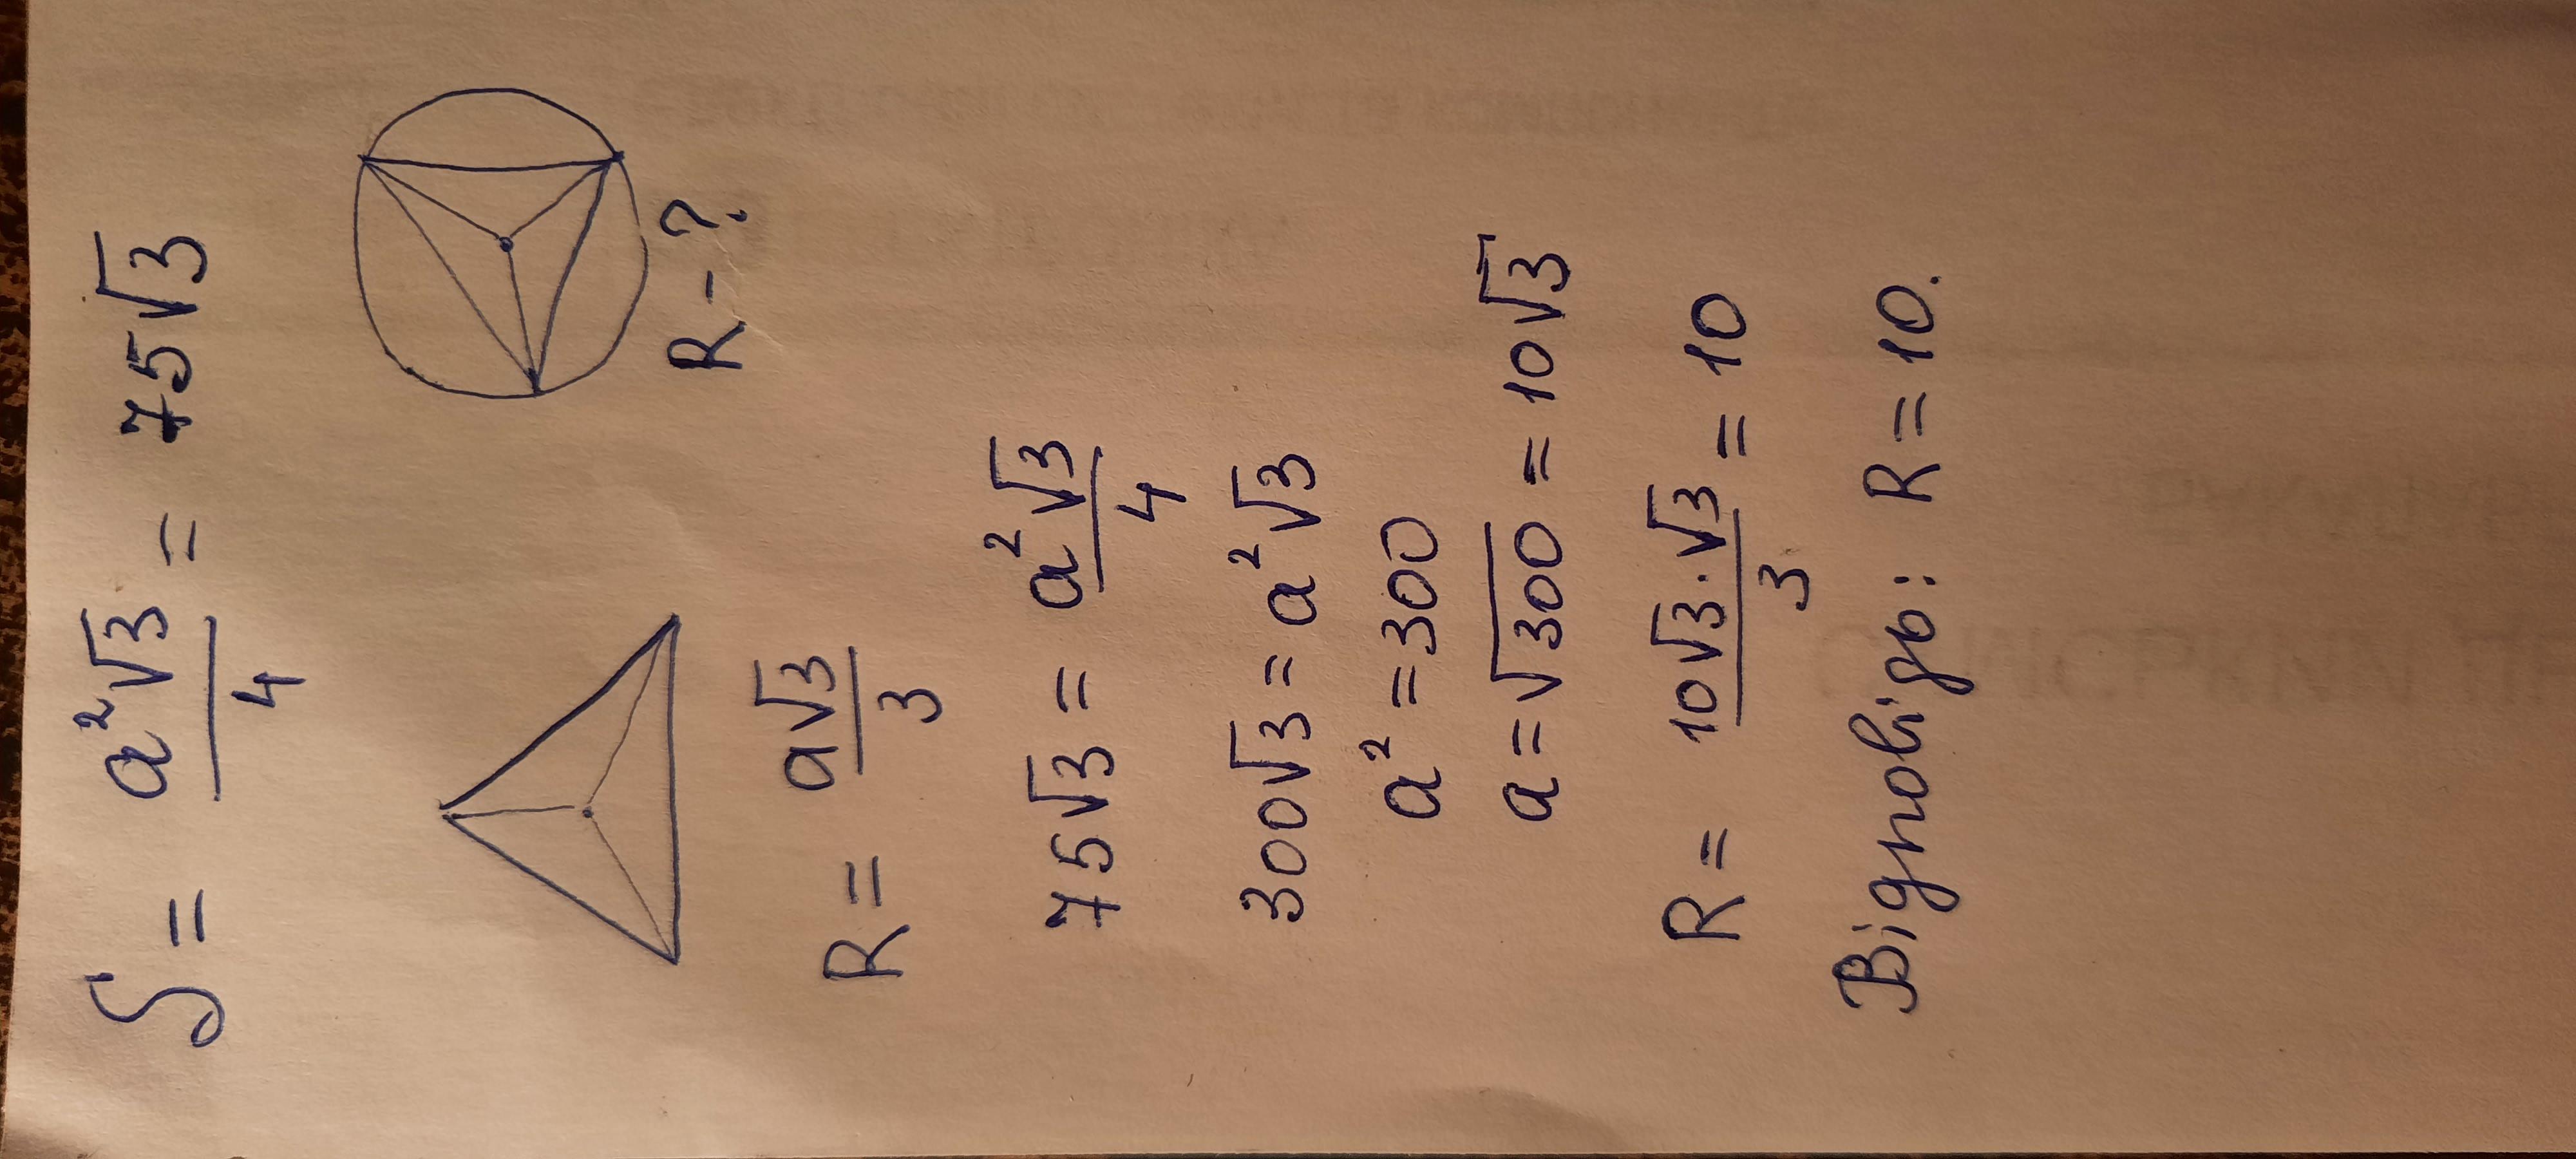 S = a²√3/4 = 75√3
R - ?
R = a√3/3
75√3 = a²√3/4
300√3 = a²√3
a² = 300
a = √300 = 10√3
R = 10√3·√3/3 = 10
Відповідь: R = 10.